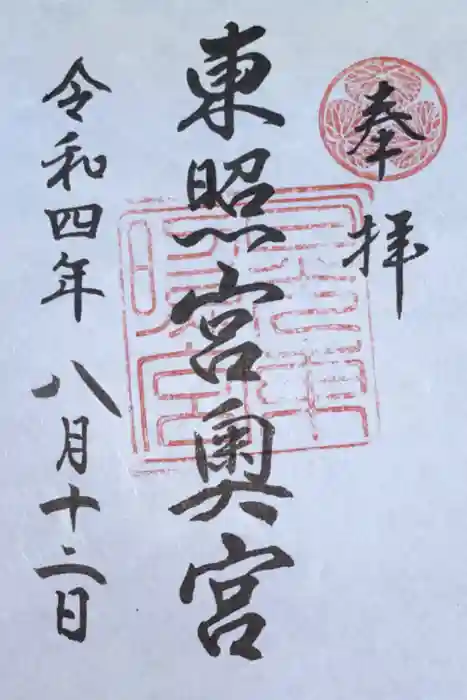 奉拝
東照宮奥宮
令和四年八月十二日